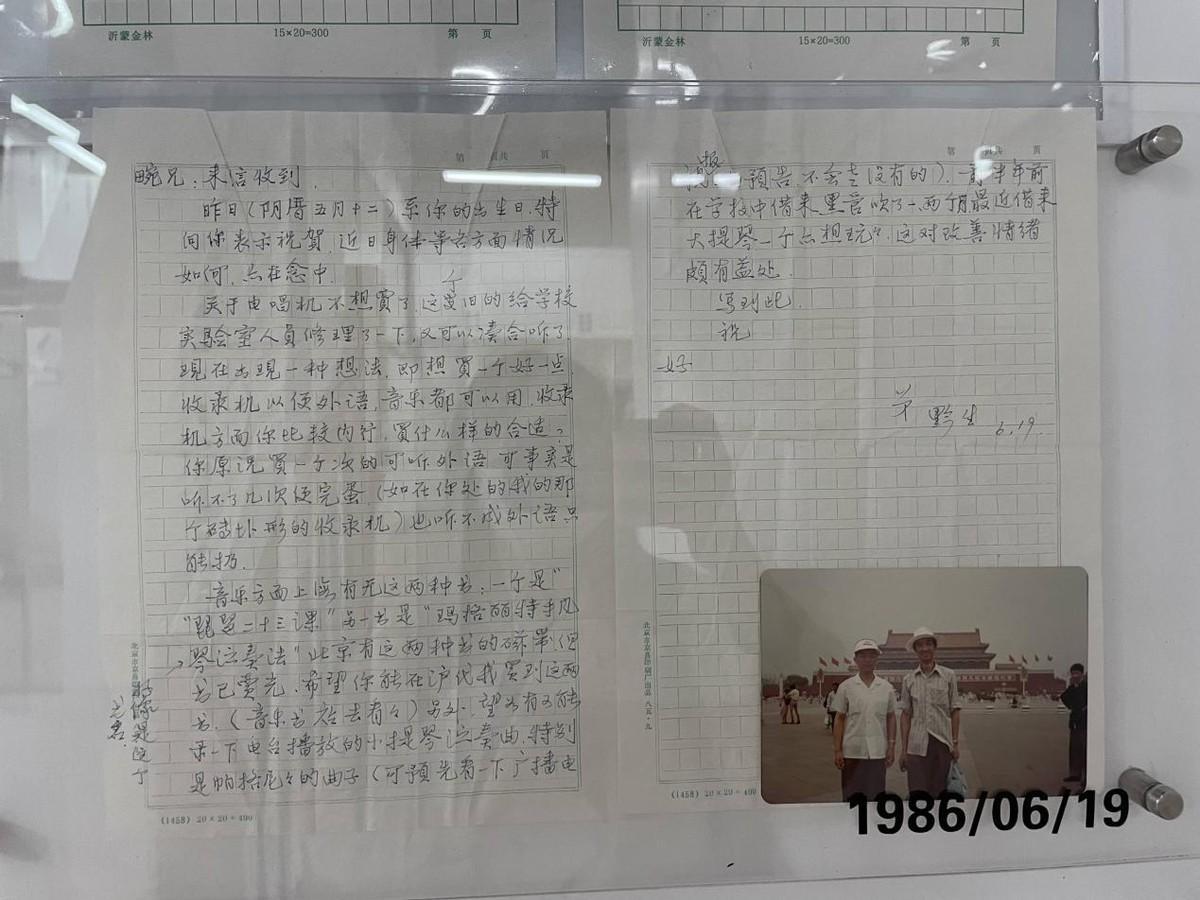 沂蒙金林 15×20=300 第 页
沂蒙金林 15×20=300 第 页
第 页共 页
畹兄：来信收到．
昨日（阴厝五月十二）系你的出生日．特
向你表示祝賀．近日身体等各方面情况
如何，点在念中．
关于电唱机不想買了．这里旧的给学校
实验室人员修理了一下，又可以凑合听了
現在出現一种想法．即想買一个好一点
收录机以便外语，音乐都可以用．收录
机方面你比较内行，買什么样的合适？
你原说買一个次的可听外语．可事实是
听不了几次便完蛋（如在你处的我的那
个砖头形的收录机）也听不成外语只
能扔．
音乐方面上海有无这两种书：一个是“
“琵琶二十三课”另一书是“玛格丽特手风
琴演奏法”北京有这两种书的磁带但
书已賣光．希望你能在沪代我買到这两
书．（音乐书店去看々）另外．望
录一下电台播放的小提琴演奏曲，特别
是帕格尼々的曲子（可预先看一下广播电
北京市京昌印刷厂出品 八五·九
(1458) 20×20=400
第 页共 页
预告．不会是没有的）．前半年前
在学校中借来黑管吹了一两个月最近借来
大提琴一个点想玩々．这对改善情绪
颇有益处．
写到此．
祝
好
弟 黔生 6.19.
北京市京昌印刷厂出品 八五·九
(1458) 20×20=400
1986/06/19